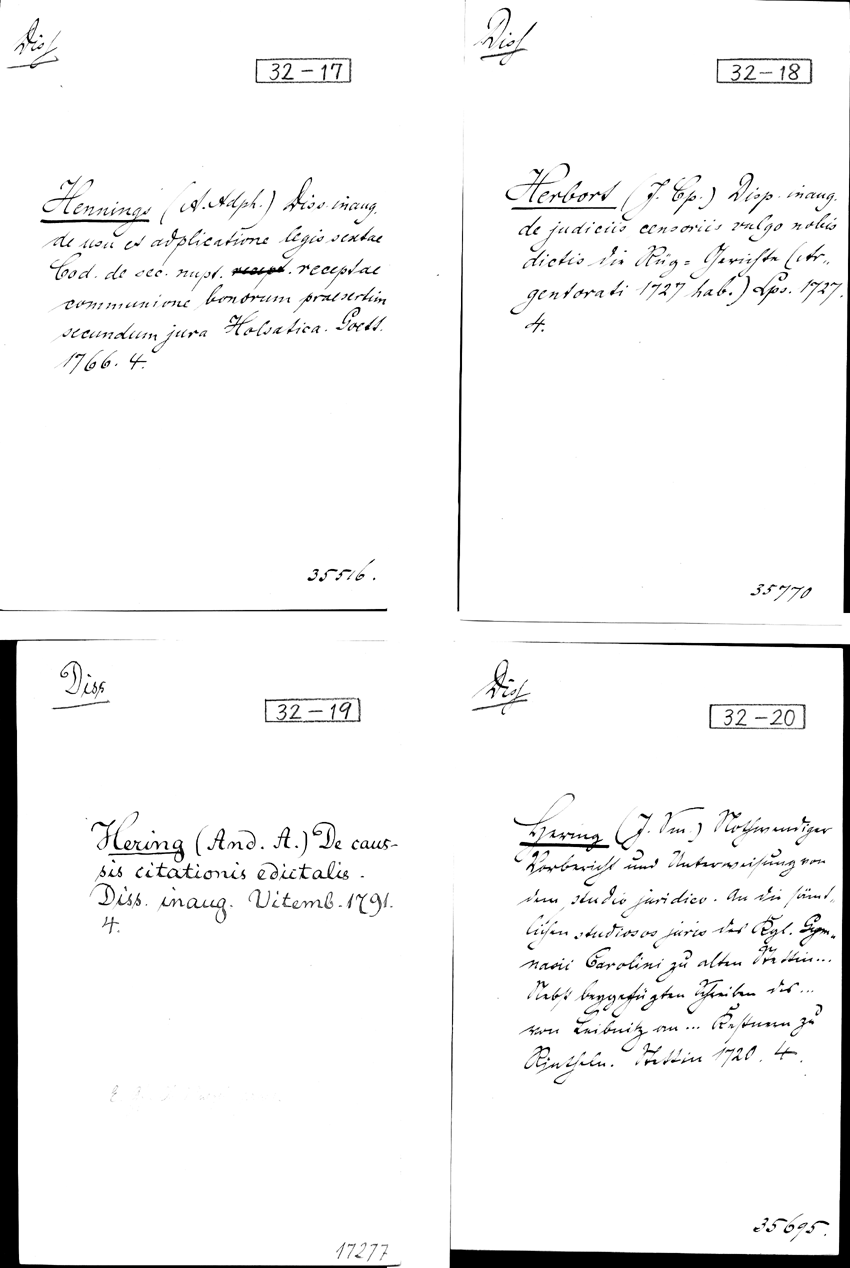 Diss
32-17
Hennings (A. Adph.) Diss. inaug.
de usu et adplicatione legis sextae
Cod. de sec. nupt. recept. receptae
communione bonorum praesertim
secundum jura Holsatica. Goett.
1766. 4.
35516.
Diss
32-18
Herbort (J. Cp.) Disp. inaug.
de judiciis censoriis vulgo nobis
dictis die Rüg= Gerichte (Ar-
gentorati 1727 hab.) Lps. 1727.
4.
35770
Diss
32-19
Hering (And. A.) De caus-
sis citationis edictalis.
Diss. inaug. Vitemb. 1791.
4.
17277
Diss
32-20
Hering (J. Sm.) Nothwendiger
Vorbericht und Unterweisung von
dem studio juridico. An die sämt-
lichen studiosos juris des Kgl. Gym-
nasii Carolini zu alten Stettin...
Nebst beygefügten Schreiben des...
von Leibnitz an... Kestnern zu
Rintheln. Stettin 1720. 4.
35695.